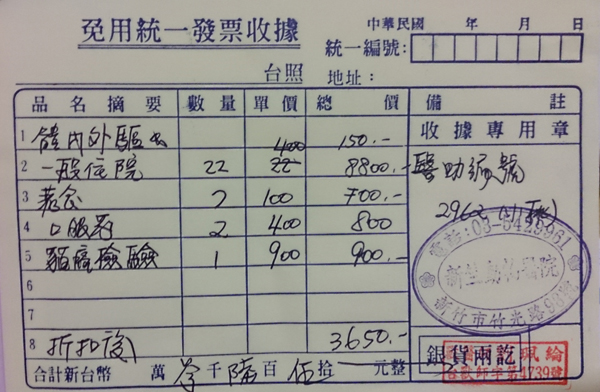 免用統一發票收據
中華民國 年 月 日
統一編號:
台照 地址:
品名摘要 數量 單價 總價 備註
1 體內外驅虫 150.- 收據專用章
2 一般住院 22 400 22 8800.- 醫助編號
3 7 100 700.- 2962
4 口服药 2 400 800
5 貓瘟檢驗 1 900 900.-
6
7
8 折扣後 3650.-
電話:03-5429961
動物醫院
新竹市竹光路98號
銀貨兩訖
珮綸
字第4739號
合計新台幣 萬 參 千 陸 百 伍 拾 元整